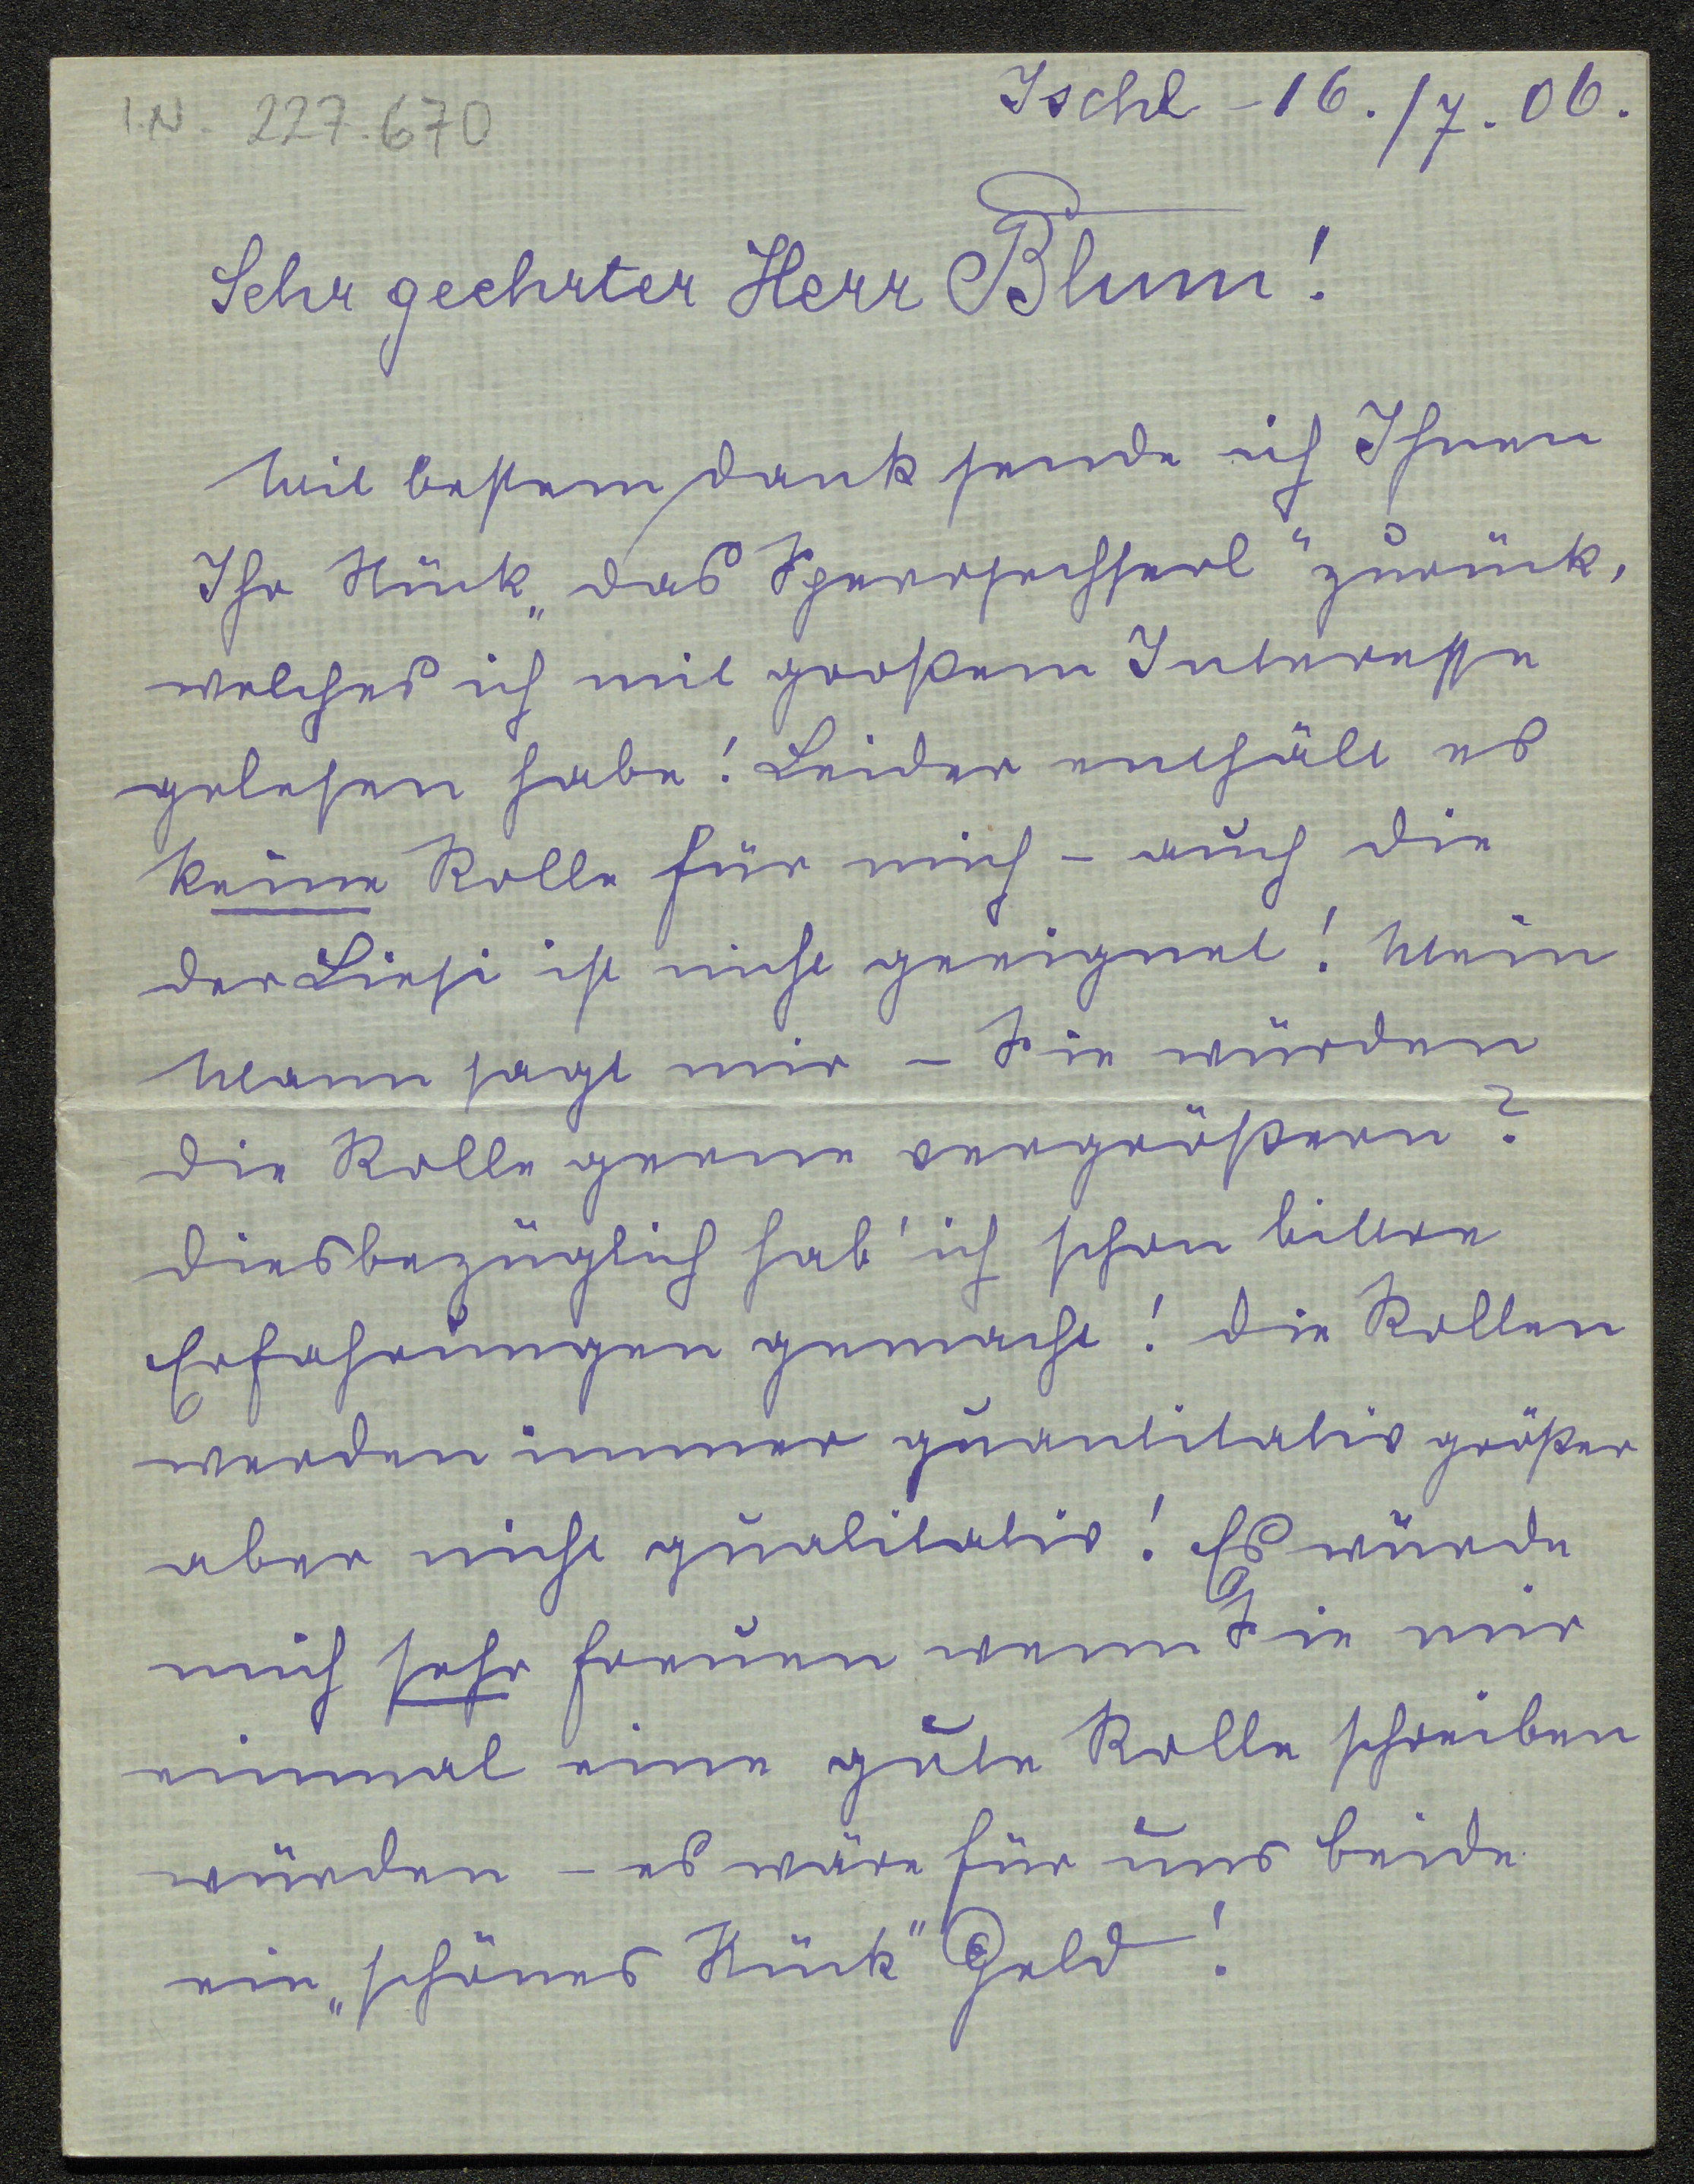 I.N. 227.670
Ischl - 16./7. 06.
Sehr geehrter Herr Blum!
Mit bestem Dank sende ich Ihnen
Ihr Stück „das Sperrsechserl" zurück,
welches ich mit großem Interesse
gelesen habe! Leider enthält es
keine Rolle für mich - auch die
der Liesi ist nicht geeignet! Mein
Mann sagt mir - Sie würden
die Rolle gerne vergrößern?
Diesbezüglich hab' ich schon bittre
Erfahrungen gemacht! Die Rollen
werden immer quantitativ größer
aber nicht qualitativ! Es würde
mich sehr freuen wenn Sie mir
einmal eine gute Rolle schreiben
würden - es wäre für uns beide
ein „schönes Stück" Geld!